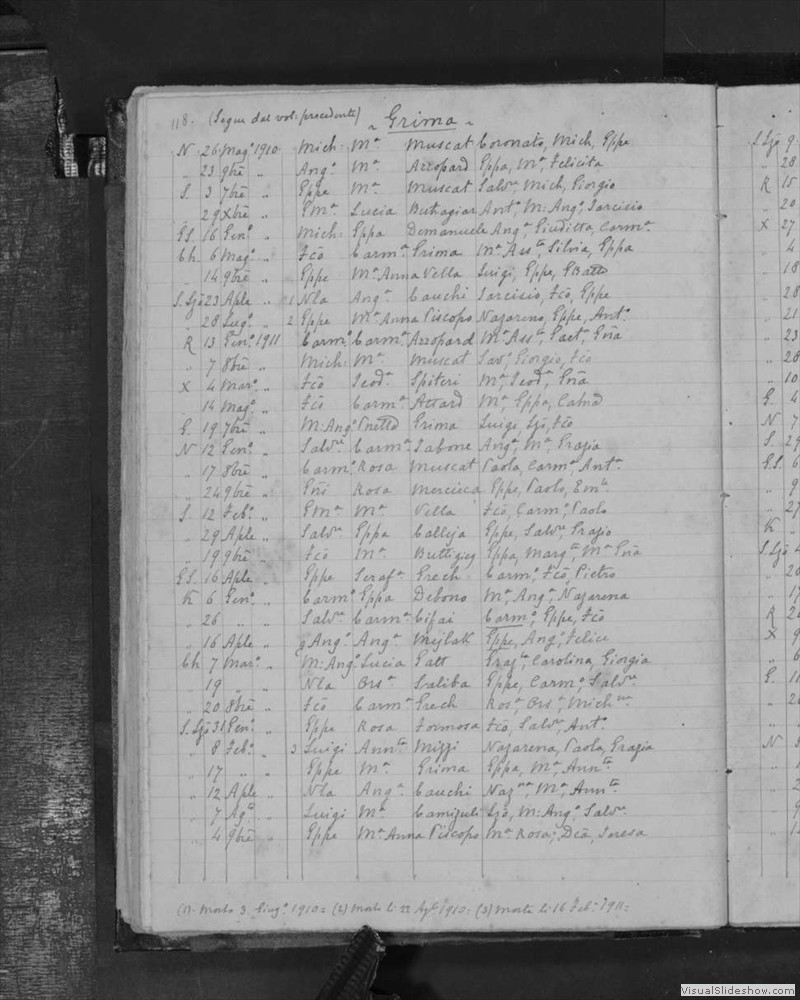 118. (Segue dal vol: precedente) ~ Grima ~
N 26 Magº 1910 Mich: Mª Muscat Coronato, Mich, Eppe
" 23 9bre " Angº Mª Azzopard Eppa, Mª, Felicita
S. 3 7bre " Eppe Mª Muscat Salvre Mich, Giorgio
" 29 Xbre " Emª Lucia Buttagiar Antº, M: Angº, Tarcisio
GS. 16 Genº " Mich: Eppa Demanuele Angª Giuditta, Carmª
Ch. 6 Magº " Fcõ Carmª Grima Mª Assta, Silvia, Eppa
" 14 9bre " Eppe Mª Anna Vella Luigi, Eppe, GBatta
S. Ljõ 23 Aple " 1 Nla Angª Cauchi Tarcisio, Fcõ, Eppe
" 28 Lugº " 2 Eppe Mª Anna Piscopo Nazareno, Eppe, Antº
R 13 Genº 1911 Carmº Carmª Azzopard Mª Assta, Gaetª, Gña
" 7 8bre " Mich: Mª Muscat Savº, Giorgio, Fcõ
X 4 Marº " Fcõ Teodª Spiteri Mª, Teodª, Gña
" 14 Magº " Fcõ Carmª Attard Mª, Eppa, Catna
G. 19 7bre " M: Angº Pnetta Grima Luigi, Ljõ, Fcõ
N 12 Genº " Salvre Carmª Tabone Angª, Mª, Grazia
" 17 8bre " Carmº Rosa Muscat Paola, Carmª, Antª
" 24 9bre " Gñi Rosa Mercieca Eppe, Paolo, Emle
S. 12 Febº " Emª Mª Vella Fcõ, Carmº, Paolo
" 29 Aple " Salvre Eppa Calleja Eppe, Salvre, Grazio
" 19 9bre " Fcõ Mª Buttigieg Eppa, Margta, Mª Gña
GS. 16 Aple " Eppe Serafª Grech Carmº, Fcõ, Pietro
K 6 Genº " Carmº Eppa Debono Mª, Angª, Nazarena
" 26 " " Salvre Carmª Cifai Carmº, Eppe, Fcõ
" 16 Aple " Angº Angª Mejlak Eppe, Angº, Felice
Ch. 7 Marº " M: Angº Lucia Galt Carolina, Giorgia
" 19 " " Nla Orsª Saliba Eppe, Carmº, Salvre
" 20 8bre " Fcõ Carmª Grech Rosª, Orsª, Michna
S. Ljõ 31 Genº " Eppe Rosa Formosa Fcõ, Salvre, Antº
" 8 Febº " 3 Luigi Annta Mizzi Nazarena, Paola, Grazia
" 17 " " Eppe Mª Grima Eppa, Mª, Annta
" 12 Aple " Nla Angª Cauchi Nazna, Mª, Annta
" 7 Agto " Luigi Mª Camizuli Ljõ, M: Angº, Salvre
" 4 9bre " Eppe Mª Anna Piscopo Mª Rosa, Dca, Teresa
(1) Morto 3. Giugº 1910= (2) Morto li 22 Agto 1910= (3) Morta li 16 Febº 1911=
S. Ljõ 9
" 28
R 15
" 20
X 27
" 4
" 18
" 28
" 21
" 23
" 28
" 10
G. 4
N 7
S. 29
GS. 6
" 9
" 27
K
S. Ljõ
VisualSlideshow.com